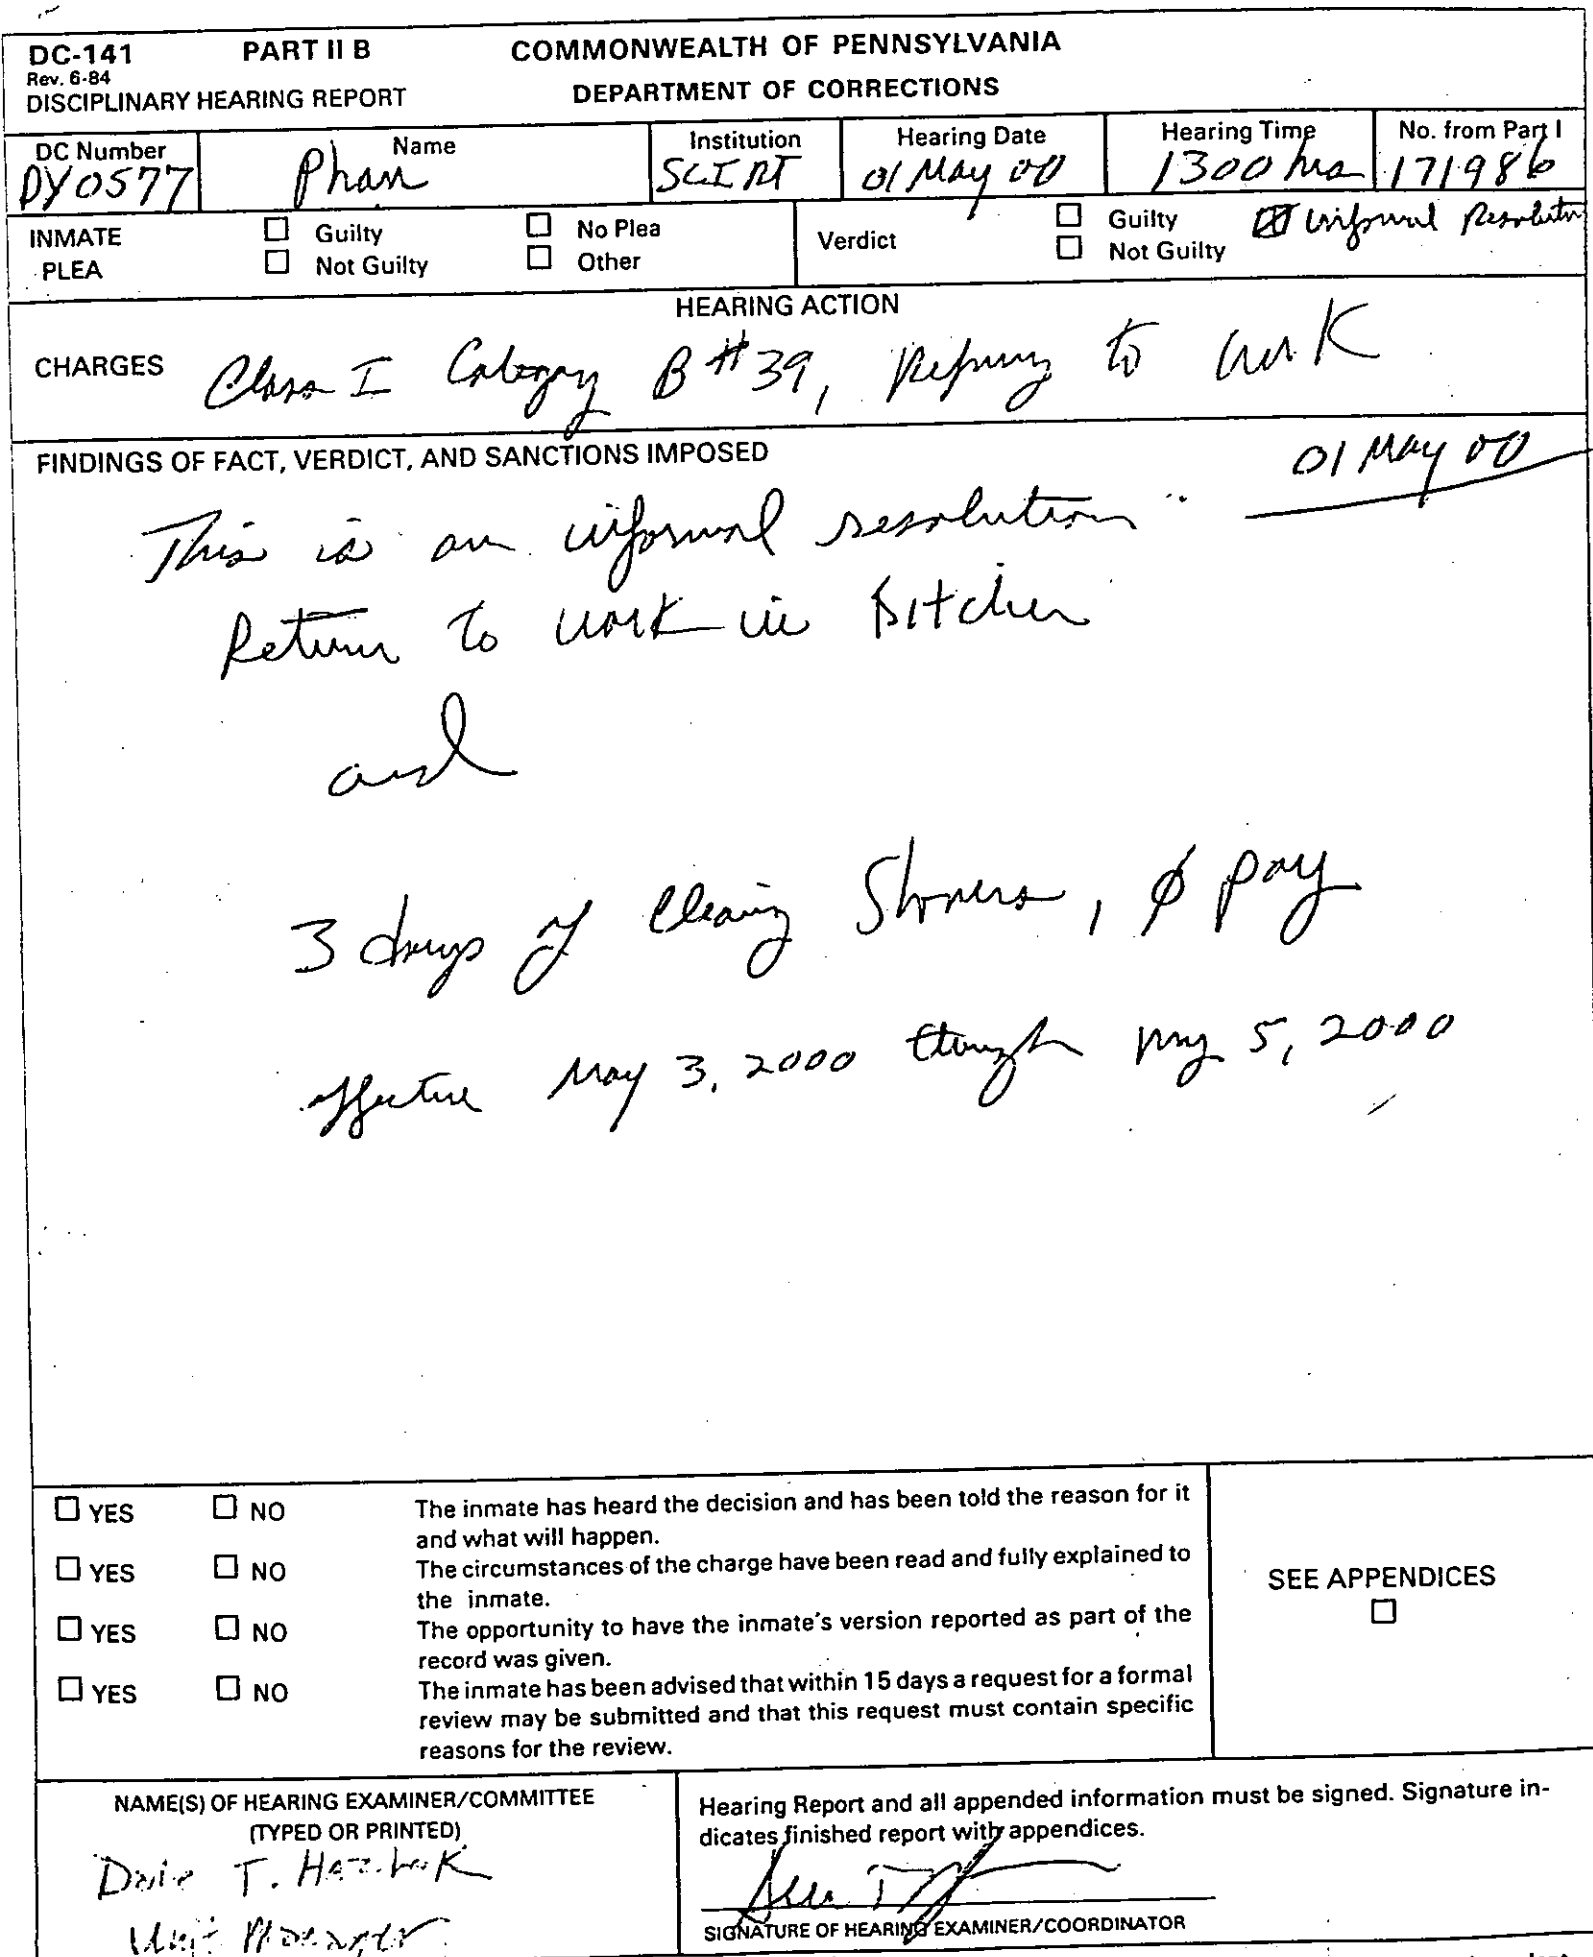 DC-141 PART II B COMMONWEALTH OF PENNSYLVANIA
Rev. 6-84
DISCIPLINARY HEARING REPORT DEPARTMENT OF CORRECTIONS
DC Number Name Institution Hearing Date Hearing Time No. from Part I
DY0577 Phan SCI 01 May 00 1300 hrs 171986
INMATE PLEA ☐ Guilty ☐ No Plea Verdict ☐ Guilty ☒ Informal Resolution
☐ Not Guilty ☐ Other ☐ Not Guilty
HEARING ACTION
CHARGES Class I Category B #39, Refusing to work
FINDINGS OF FACT, VERDICT, AND SANCTIONS IMPOSED 01 May 00
This is an informal resolution
Return to work in kitchen
and
3 days of cleaning Showers, ∅ pay
effective May 3, 2000 through May 5, 2000
☐ YES ☐ NO The inmate has heard the decision and has been told the reason for it
and what will happen.
☐ YES ☐ NO The circumstances of the charge have been read and fully explained to
the inmate.
☐ YES ☐ NO The opportunity to have the inmate's version reported as part of the
record was given.
☐ YES ☐ NO The inmate has been advised that within 15 days a request for a formal
review may be submitted and that this request must contain specific
reasons for the review.
SEE APPENDICES
☐
NAME(S) OF HEARING EXAMINER/COMMITTEE
(TYPED OR PRINTED)
T.
Unit Manager
Hearing Report and all appended information must be signed. Signature in-
dicates finished report with appendices.
SIGNATURE OF HEARING EXAMINER/COORDINATOR